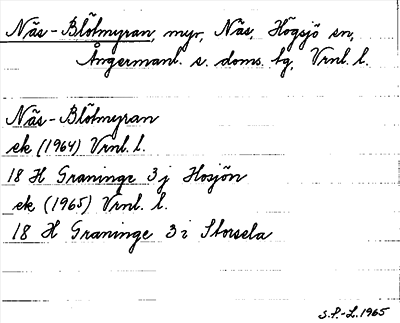 Näs-Blötmyran, myr, Näs, Högsjö sn,
Ångermanl. s. doms. tg, Vrnl. l.
Näs-Blötmyran
ek (1964) Vrnl. l.
18 H Graninge 3j Hosjön
ek (1965) Vrnl. l.
18 H Graninge 3i Storsela
S.P.-L. 1965